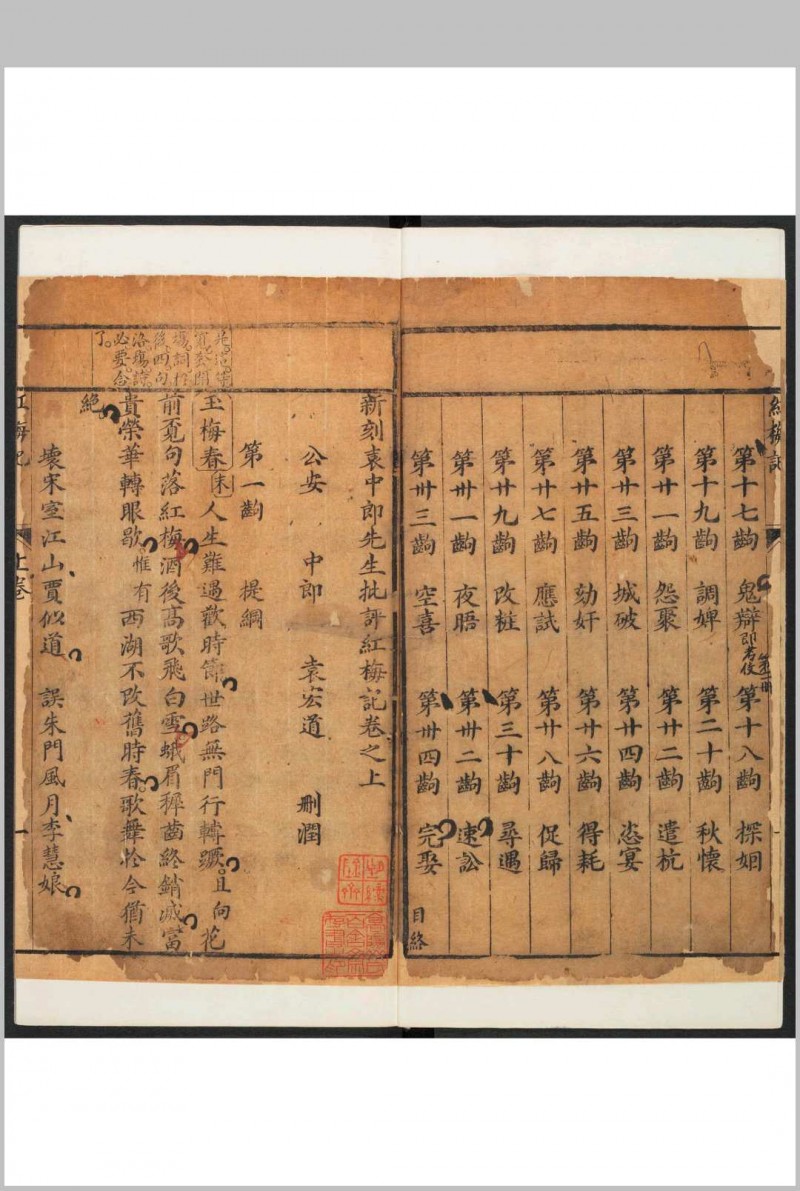 第十七齣　鬼辯　第十八齣　探姻
第十九齣　調婢　第二十齣　秋懷
第廿一齣　怨聚　第廿二齣　遣杭
第廿三齣　城破　第廿四齣　恣宴
第廿五齣　劾奸　第廿六齣　得耗
第廿七齣　應試　第廿八齣　促歸
第廿九齣　改粧　第三十齣　尋遇
第卅一齣　夜晤　第卅二齣　速訟
第卅三齣　空喜　第卅四齣　完娶
目終
新刻袁中郎先生批評紅梅記卷之上
公安　中郎　袁宏道　刪潤
第一齣　提綱
玉梅春末人生難遇歡時節世路無門行轉蹶且向花
前覓句落紅梅酒後高歌飛白雪蛾眉穉齒終銷滅富
貴榮華轉眼歇惟有西湖不改舊時春歌舞於今猶未
絕
壞宋室江山賈似道　誤朱門風月李慧娘
後四句
必要合
了
紅梅記
紅梅記　上卷